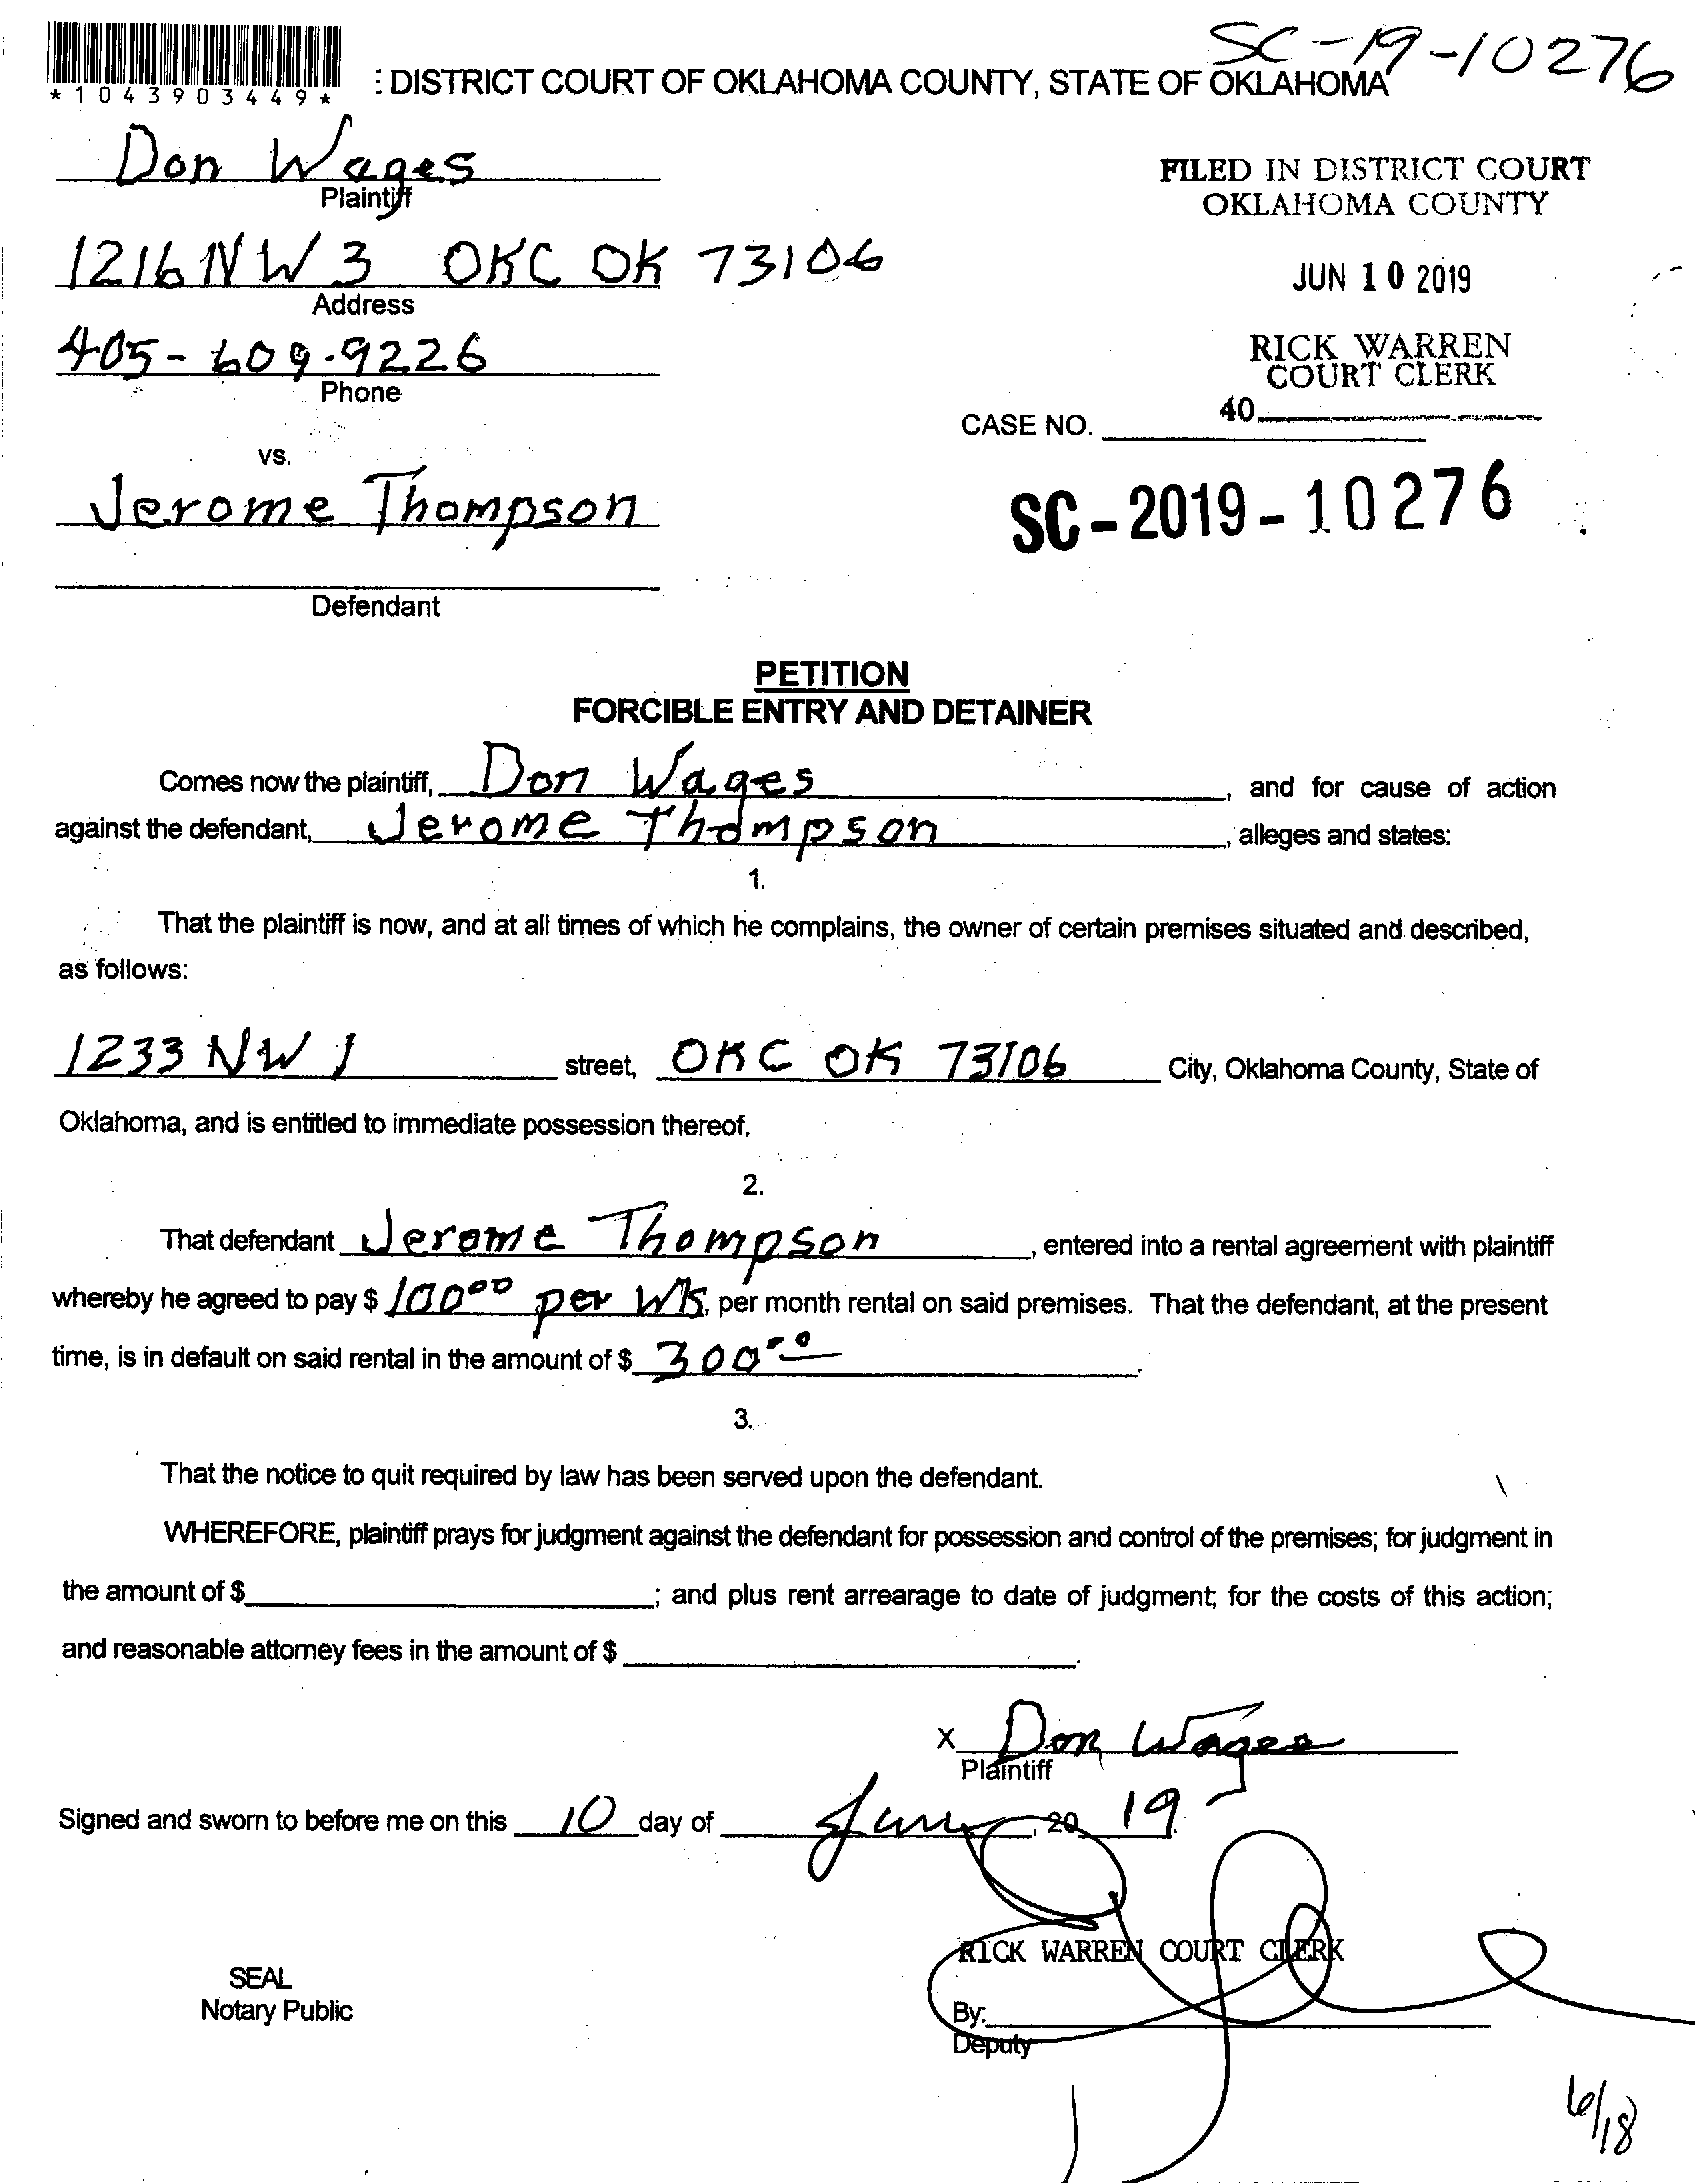 SC-19-10276
*1043903449*
: DISTRICT COURT OF OKLAHOMA COUNTY, STATE OF OKLAHOMA
Don Wages
Plaintiff
FILED IN DISTRICT COURT
OKLAHOMA COUNTY
1216 NW 3 OKC OK 73106
Address
JUN 10 2019
405-609-9226
Phone
RICK WARREN
COURT CLERK
40
CASE NO.
vs.
Jerome Thompson
SC-2019-10276
Defendant
PETITION
FORCIBLE ENTRY AND DETAINER
Comes now the plaintiff, Don Wages, and for cause of action
against the defendant, Jerome Thompson, alleges and states:
1.
That the plaintiff is now, and at all times of which he complains, the owner of certain premises situated and described,
as follows:
1233 NW 1 street, OKC OK 73106 City, Oklahoma County, State of
Oklahoma, and is entitled to immediate possession thereof.
2.
That defendant Jerome Thompson, entered into a rental agreement with plaintiff
whereby he agreed to pay $ 100 00 per Wk. per month rental on said premises. That the defendant, at the present
time, is in default on said rental in the amount of $ 300 00.
3.
That the notice to quit required by law has been served upon the defendant.
WHEREFORE, plaintiff prays for judgment against the defendant for possession and control of the premises; for judgment in
the amount of $ ; and plus rent arrearage to date of judgment; for the costs of this action;
and reasonable attorney fees in the amount of $ .
X Don Wages
Plaintiff
Signed and sworn to before me on this 10 day of June, 20 19.
RICK WARREN COURT CLERK
SEAL
Notary Public
By:
Deputy
6/18